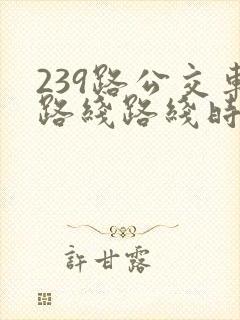 239路公交車
路綫路綫時
許甘露